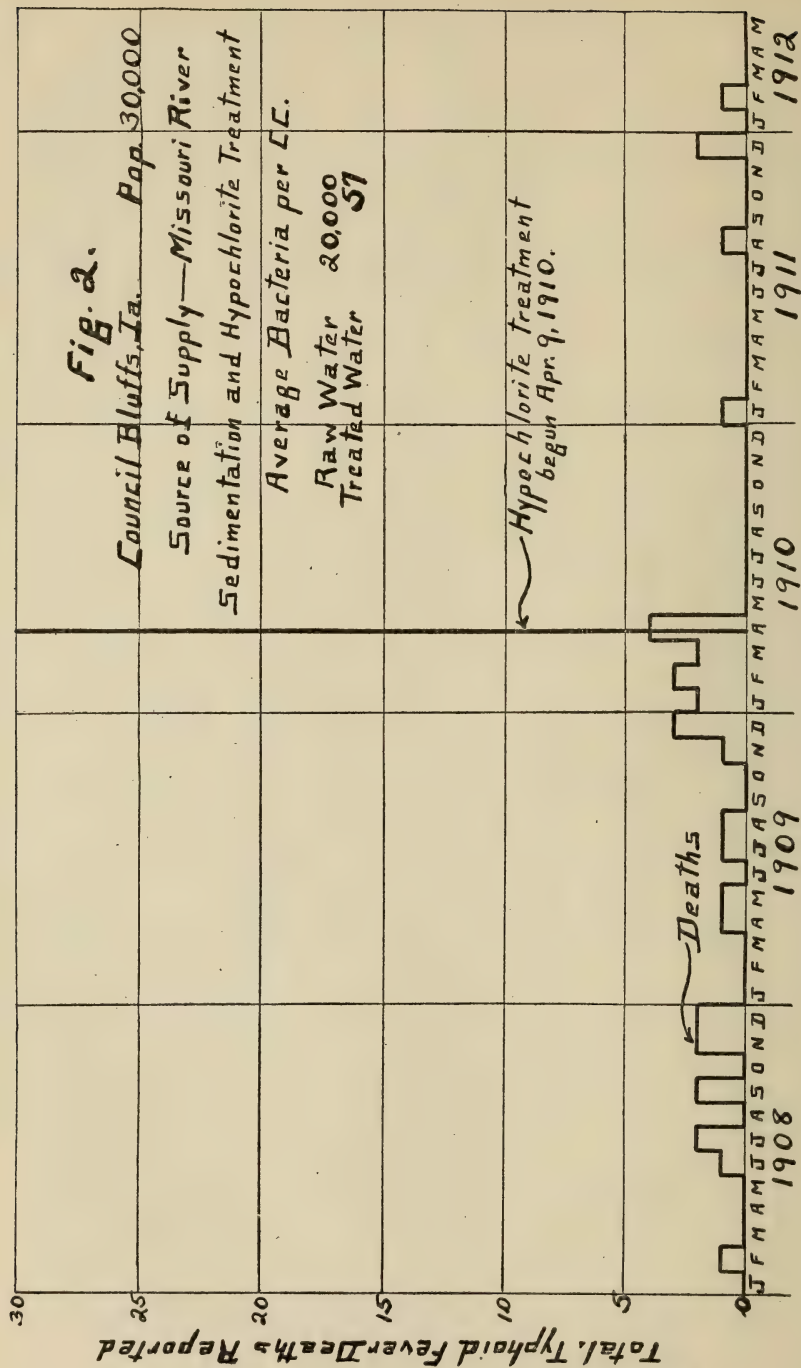 Fig. 2.
Council Bluffs, Ia. Pop. 30,000
Source of Supply—Missouri River
Sedimentation and Hypochlorite Treatment
Average Bacteria per CC.
Raw Water 20,000
Treated Water 57
Hypochlorite treatment
begun Apr. 9, 1910.
Deaths
Total Typhoid Fever Deaths Reported
30
25
20
15
10
5
0
J F M A M J J A S O N D J F M A M J J A S O N D J F M A M J J A S O N D J F M A M J J A S O N D J F M A M
1908 1909 1910 1911 1912